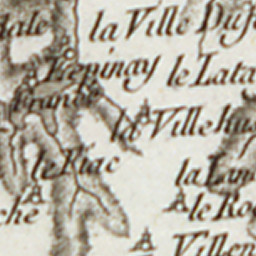 la Ville Duf
Lepinay le Lata
la Ville hu
le Piac
la Lan
che
le Ro
Villen